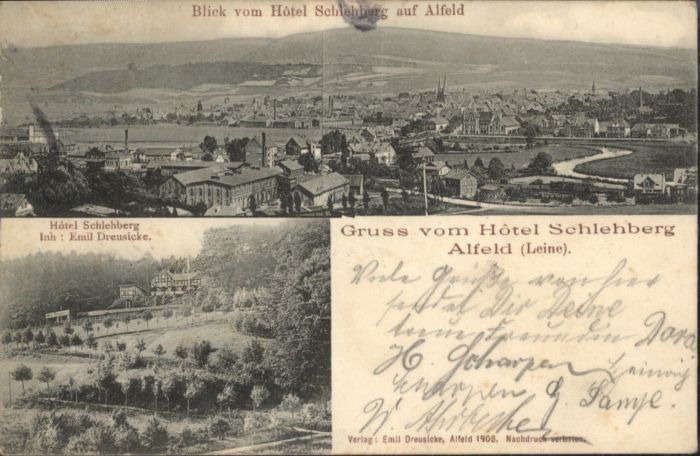 Blick vom Hôtel Schlehberg auf Alfeld
Hôtel Schlehberg
Inh : Emil Dreusicke.
Gruss vom Hôtel Schlehberg
Alfeld (Leine).
Viele Grüße von hier
sendet Dir Deine
treue Freundin Dora
H. Scharpen
W.
Verlag: Emil Dreusicke, Alfeld 1906. Nachdruck verboten.